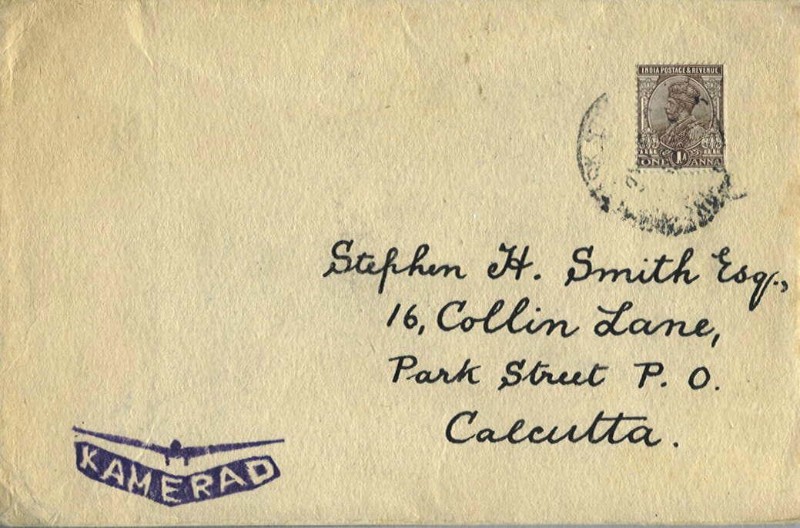 INDIA POSTAGE & REVENUE
1A
ONE ANNA
Stephen H. Smith Esq.,
16, Collin Lane,
Park Street P. O.
Calcutta.
KAMERAD